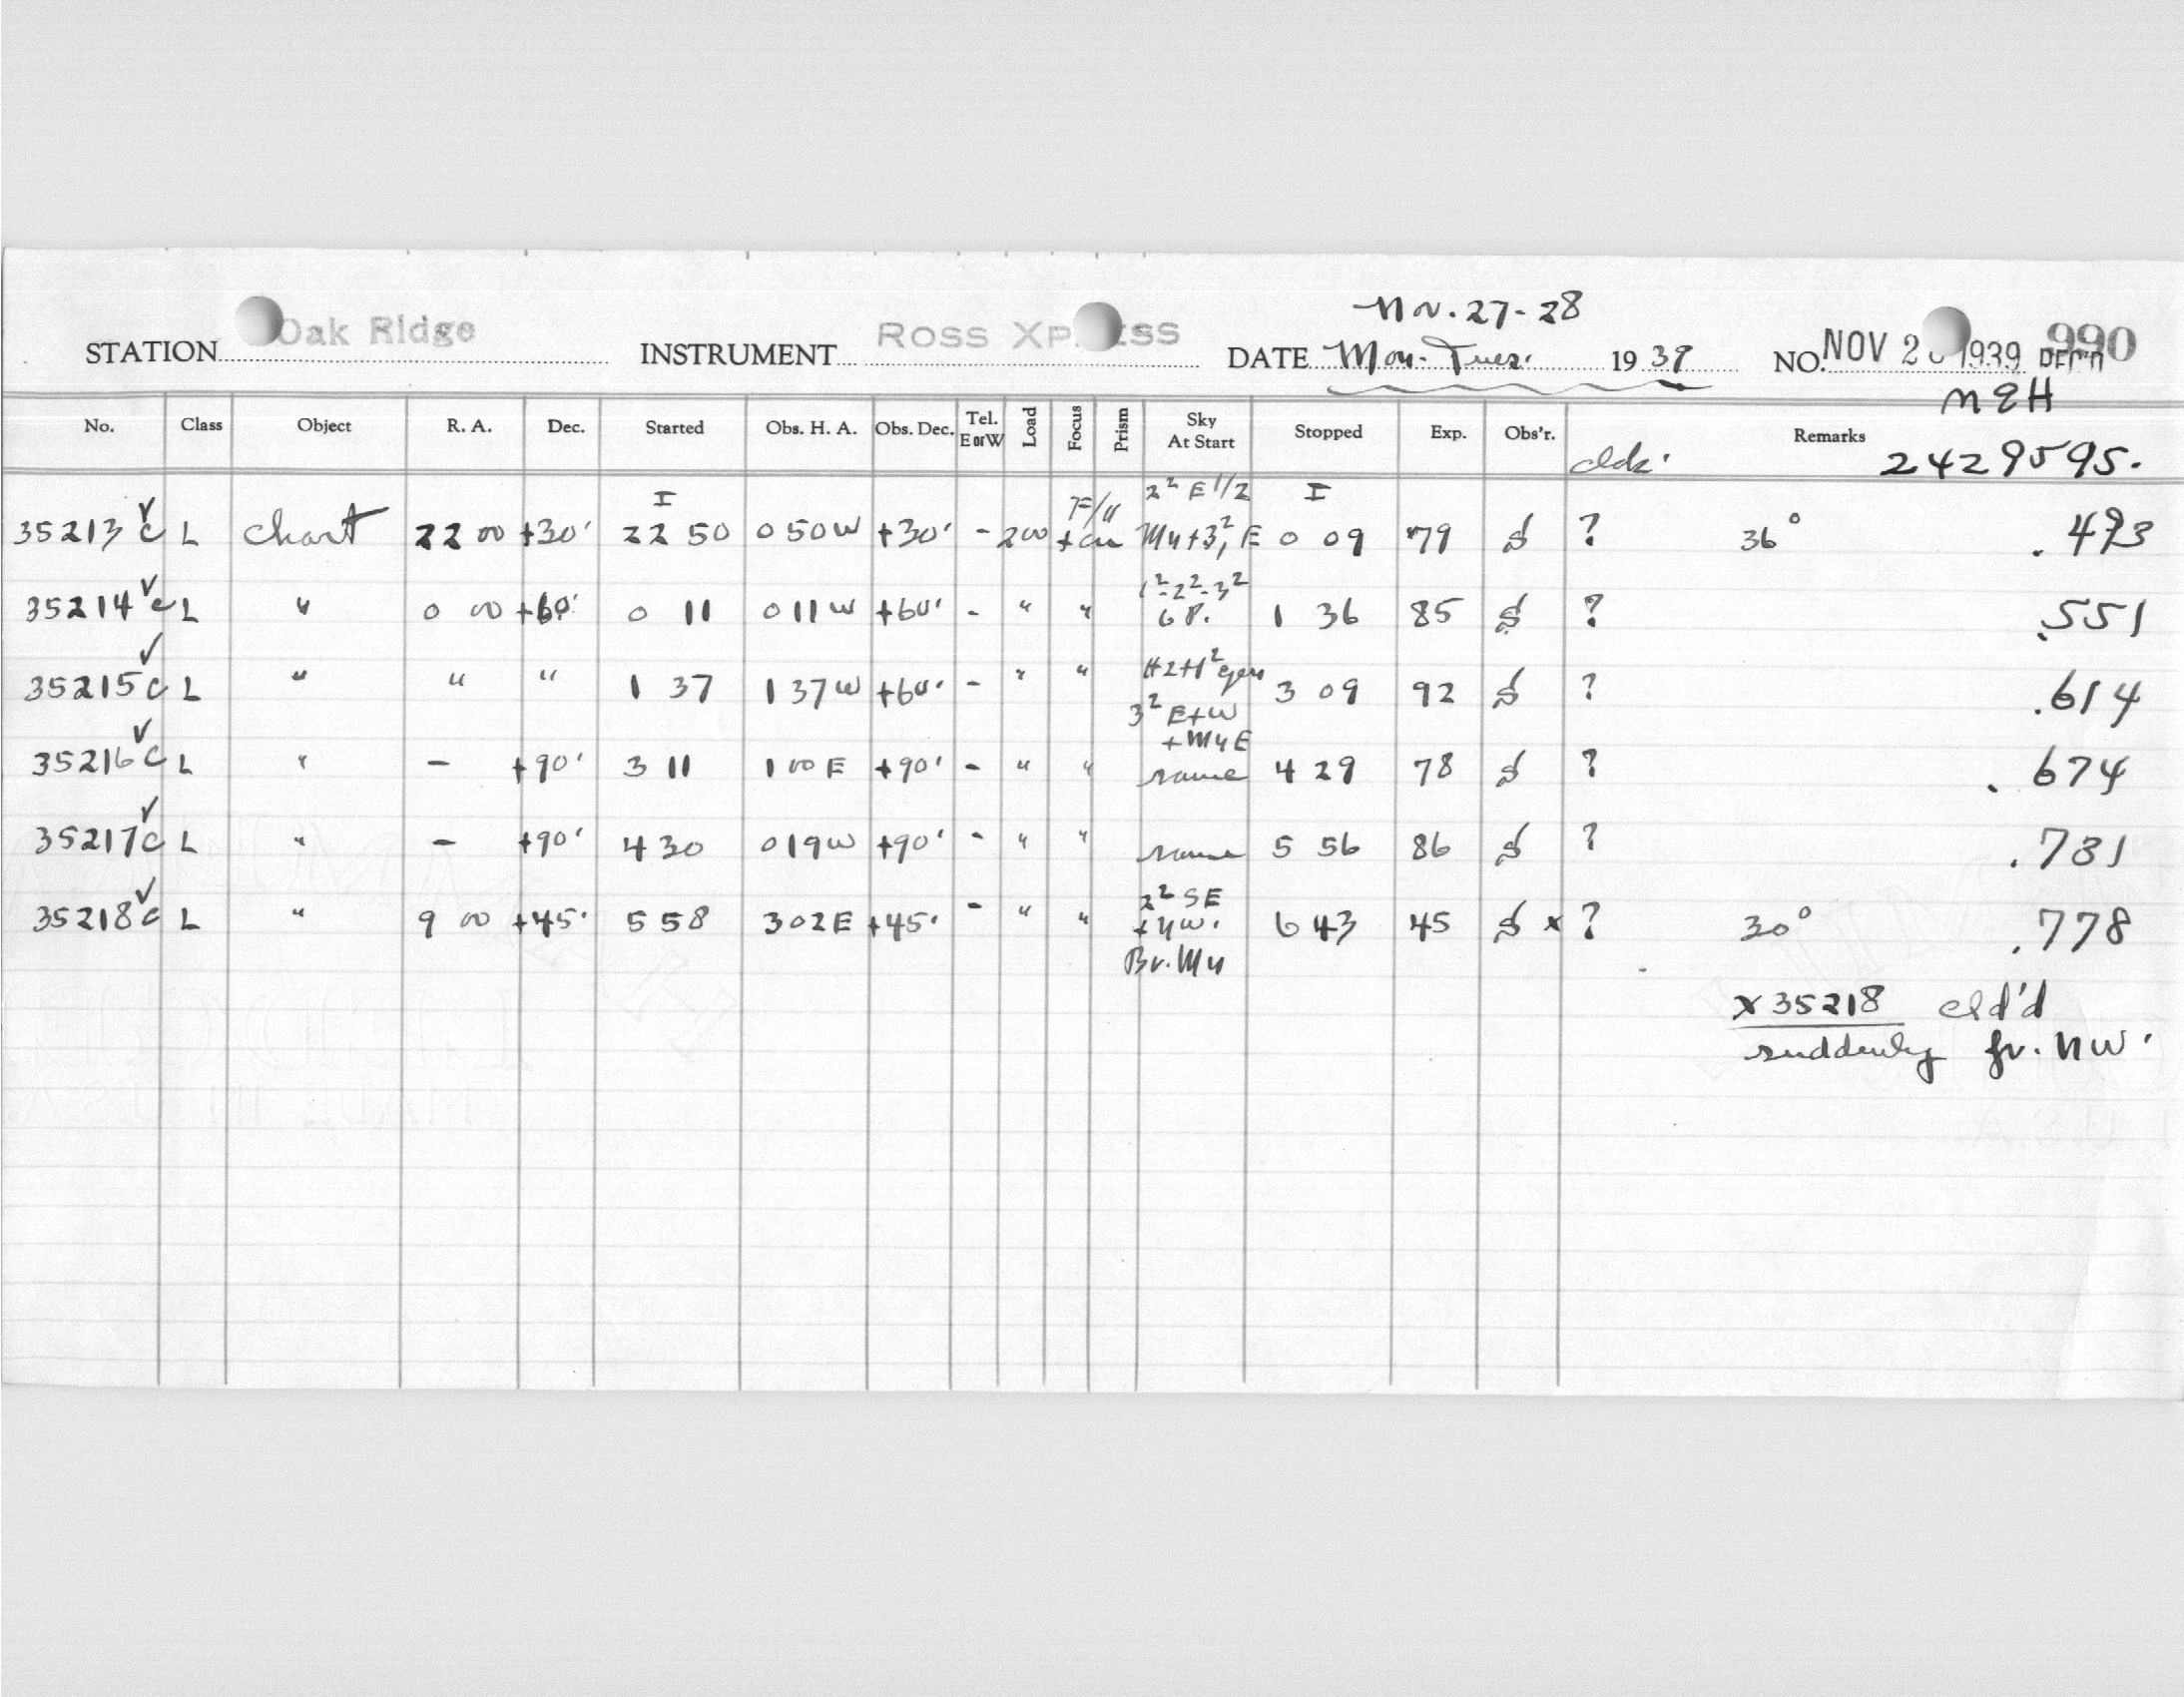 Nov. 27-28
STATION Oak Ridge INSTRUMENT ROSS XP ESS DATE Mon.-Tues. 1939 NO. NOV 2 1939 REC'D 990
MEH
No. Class Object R. A. Dec. Started Obs. H. A. Obs. Dec. Tel. E or W Load Focus Prism Sky At Start Stopped Exp. Obs'r. Remarks
cldk. 2429595.
I 2² E 1/2 I
35213 c L chart 22 00 +30' 22 50 0 50 W +30' - 200 My+3², E 0 09 79 S ? 36° .493
1²-2²-3²
35214 c L " 0 00 +60' 0 11 0 11 W +60' - " " 6P. 1 36 85 S ? .551
35215 c L " " " 1 37 1 37 W +60' - " " H2+1² 3 09 92 S ? .614
3² E+W
+ My E
35216 c L " - +90' 3 11 1 00 E +90' - " " same 4 29 78 S ? .674
35217 c L " - +90' 4 30 0 19 W +90' - " " same 5 56 86 S ? .731
2² SE
35218 c L " 9 00 +45' 5 58 3 02 E +45' - " " + NW. 6 43 45 S x ? 30° .778
Br. My
x 35218 cld'd
suddenly fr. NW.